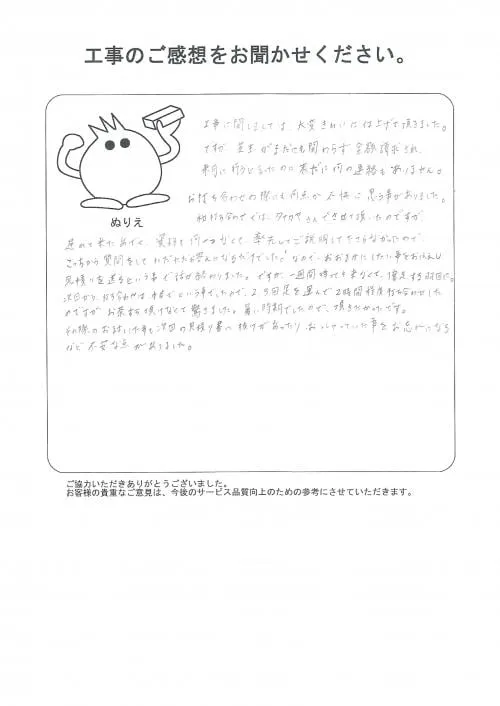 工事のご感想をお聞かせください。
工事に関しましては、大変きれいに仕上げて頂きました。
ですが、芝生がまだにも関わらず全額請求され、
来月に行うとるたのに未だに何の連絡もありません。
お打ち合わせの際にも何点か不快に思う事がありました。
初打ち合わせでは、タイカワさんでさせて頂いたのですが、
ぬりえ
進めて来たあげく、資料も何一つなくて、率先してご説明して下さらなかったので、
こちらから質問をして
なので、おおまかにしたい事をお伝えし
見積りを送るという事で話が終わりました。ですが、一週間待っても来なくて、催促する羽目に。
次回から、打ち合わせは本社でという事でしたので、2、3回足を運んで2時間程度打ち合わせした
のですが、お茶すら頂けなくて驚きました。暑い時期でしたので、頂きたかったです。
その際のお話した事も次回の見積り書に抜けがあったり、おっしゃっていた事をお忘れになる
など不安な点がありました。
ご協力いただきありがとうございました。
お客様の貴重なご意見は、今後のサービス品質向上のための参考にさせていただきます。